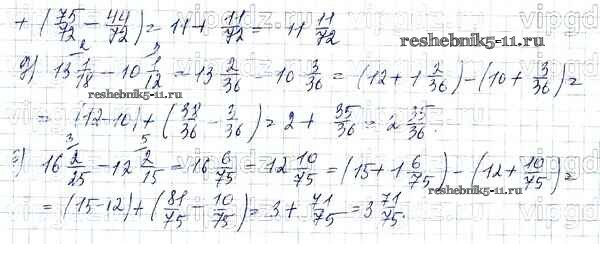 + (75/72 − 44/72) = 11 + 11/72 = 11 11/72
reshebnik5-11.ru
2 3
д) 13 1/18 − 10 1/12 = 13 2/36 − 10 3/36 = (12 + 1 2/36) − (10 + 3/36) =
reshebnik5-11.ru
= (12−10) + (38/36 − 3/36) = 2 + 35/36 = 2 35/36.
3 5
16 2/25 − 12 2/15 = 16 6/75 12 10/75 = (15 + 1 6/75) − (12 + 10/75) =
reshebnik5-11.ru
= (15−12) + (81/75 − 10/75) = 3 + 71/75 = 3 71/75.